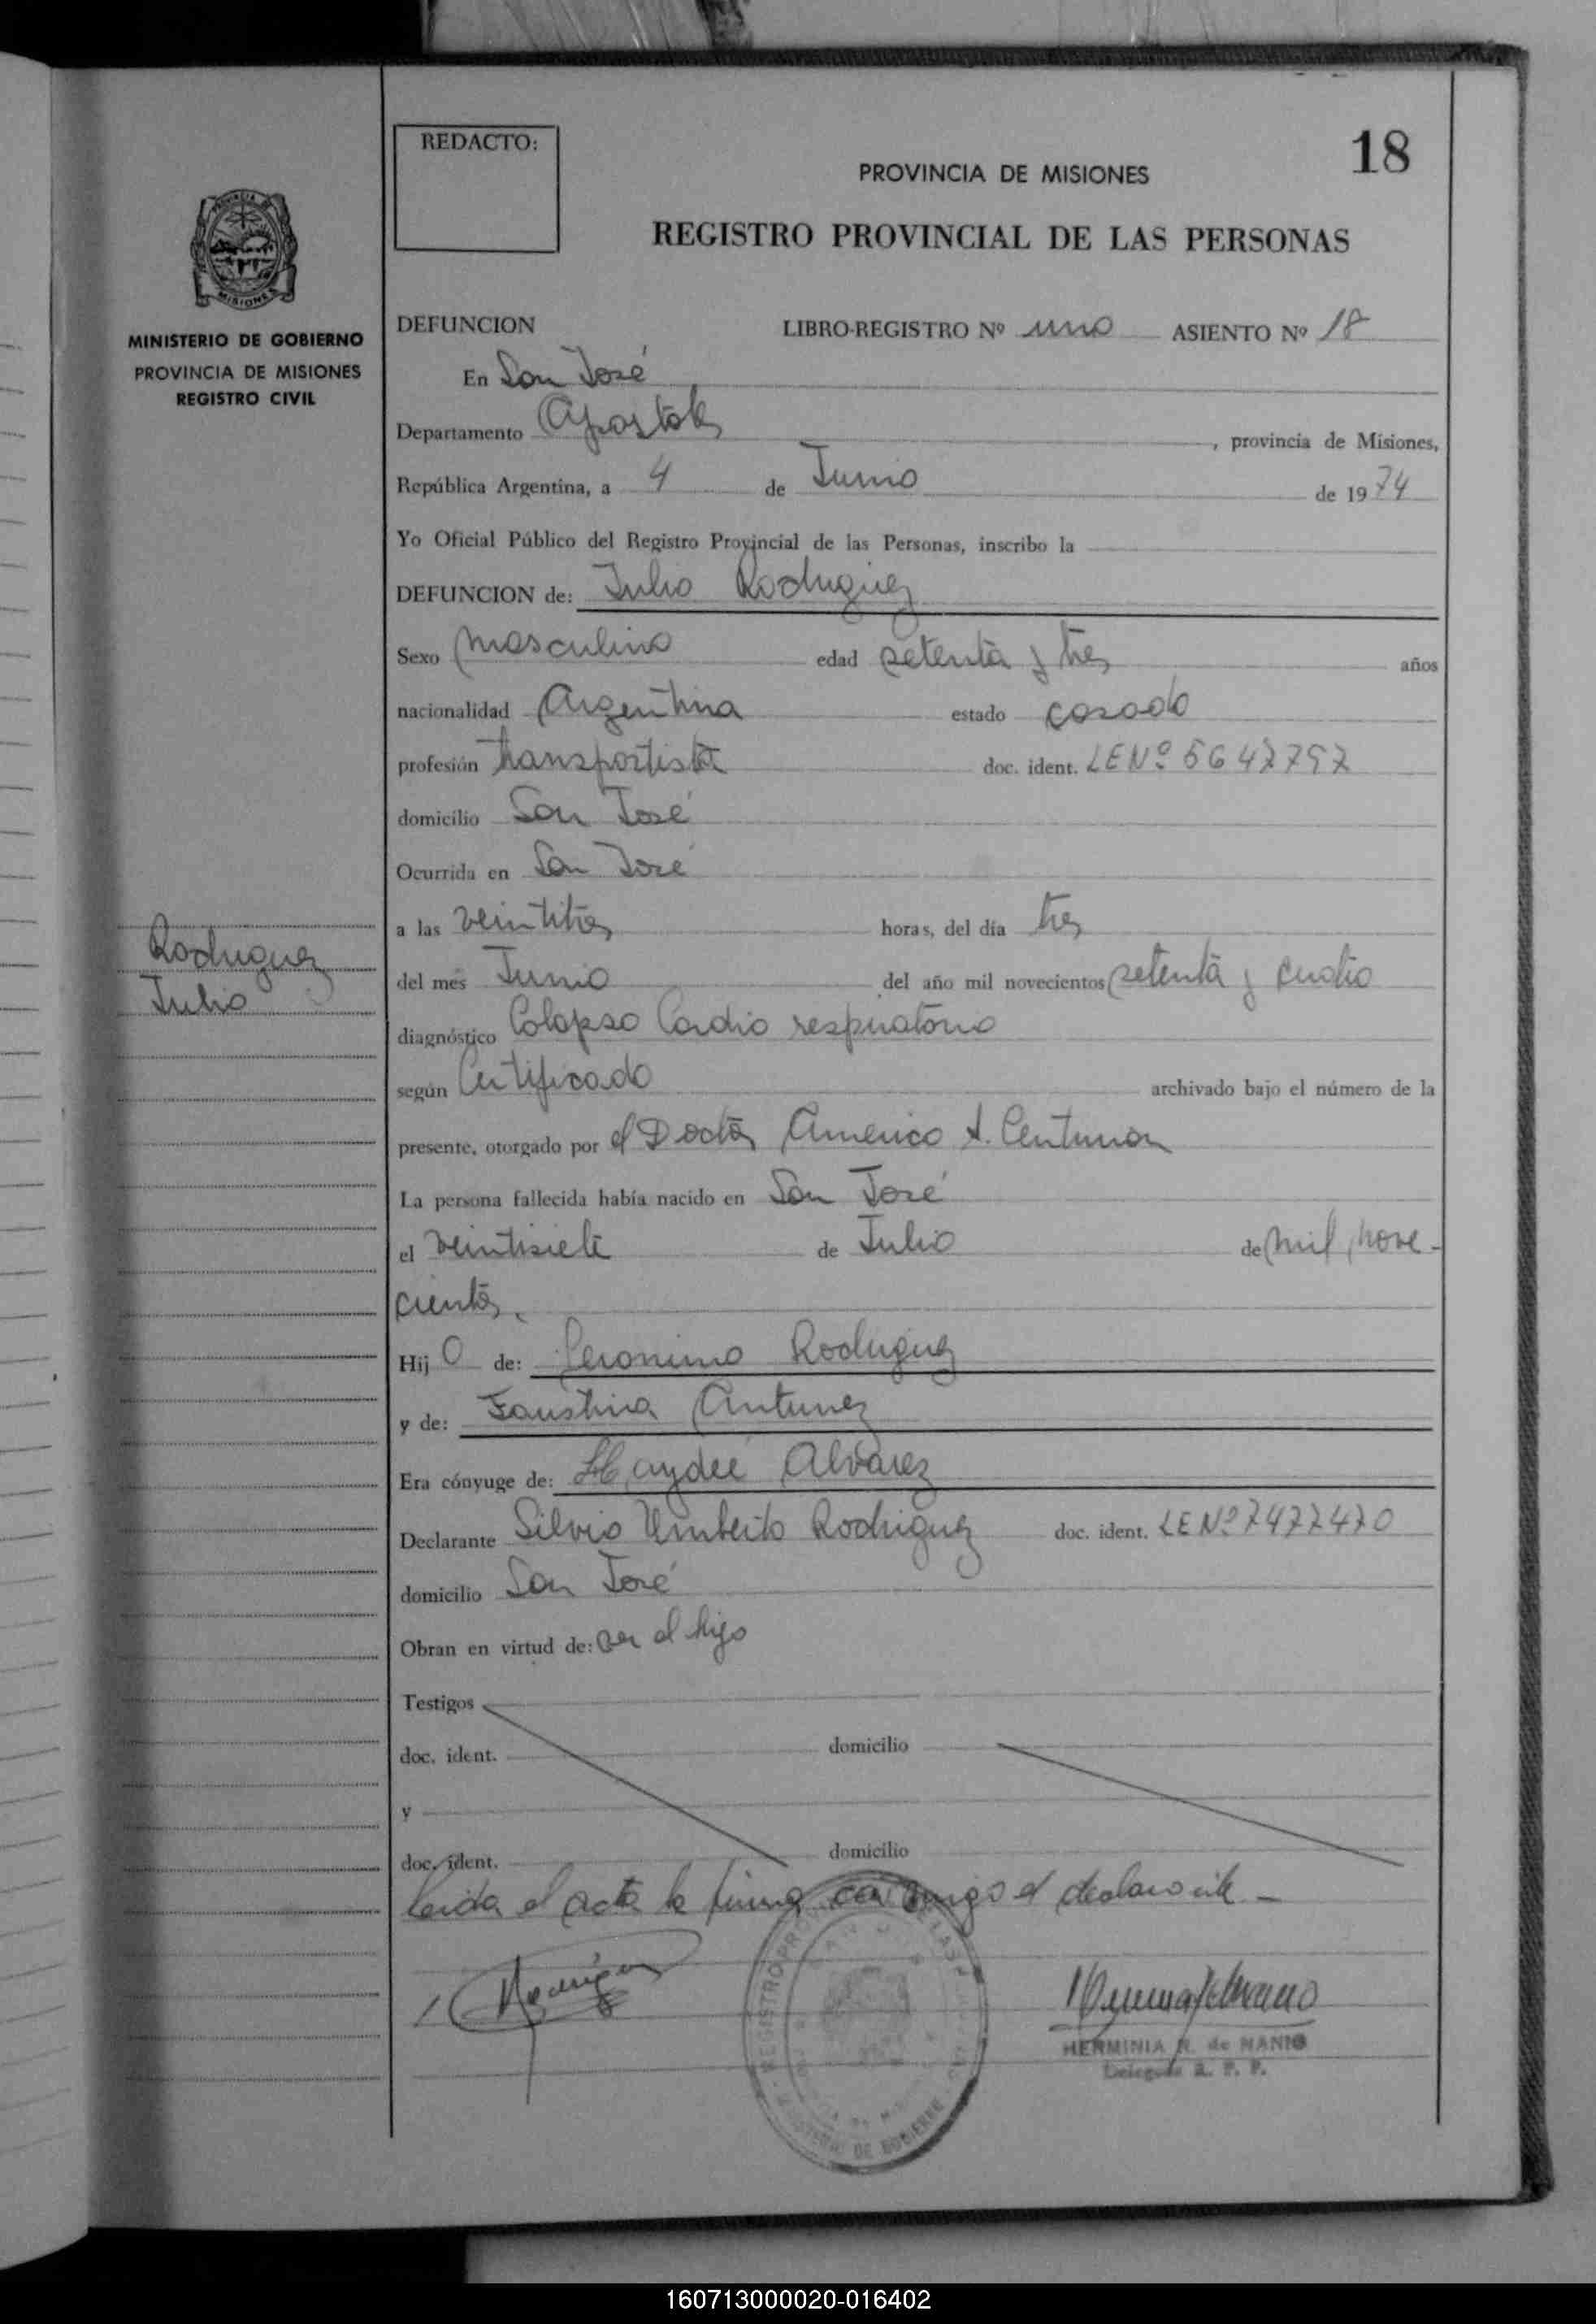 REDACTO:
18
PROVINCIA DE MISIONES
REGISTRO PROVINCIAL DE LAS PERSONAS
MISIONES
MINISTERIO DE GOBIERNO
PROVINCIA DE MISIONES
REGISTRO CIVIL
DEFUNCION LIBRO-REGISTRO Nº uno ASIENTO Nº 18
En San José
Departamento Apostoles, provincia de Misiones,
República Argentina, a 4 de Junio de 1974
Yo Oficial Público del Registro Provincial de las Personas, inscribo la
DEFUNCION de: Julio Rodriguez
Sexo masculino edad setenta y tres años
nacionalidad Argentina estado casado
profesión transportista doc. ident. LE Nº 5647797
domicilio San José
Ocurrida en San José
a las veintitres horas, del día tres
Rodriguez
Julio
del mes Junio del año mil novecientos setenta y cuatro
diagnóstico Colapso Cardio respiratorio
según Certificado archivado bajo el número de la
presente, otorgado por el Doctor Americo A. Centurion
La persona fallecida había nacido en San José
el veintisiete de Julio de mil nove-
cientos.
Hij o de: Geronimo Rodriguez
y de: Faustina Antunez
Era cónyuge de: Haydeé Alvarez
Declarante Silvio Umberto Rodriguez doc. ident. LE Nº 7477470
domicilio San José
Obran en virtud de: ser el hijo
Testigos
doc. ident. domicilio
y
doc. ident. domicilio
Leida el acta la firma conmigo el declarante -
HERMINIA N. de NANIO
Delegada R. P. P.
160713000020-016402